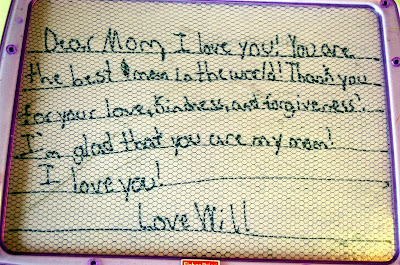 Dear Mom, I love you! You are
the best mom in the world! Thank you
for your love, kindness, and forgiveness!
I'm glad that you are my mom!
I love you!
Love Will
Fisher-Price